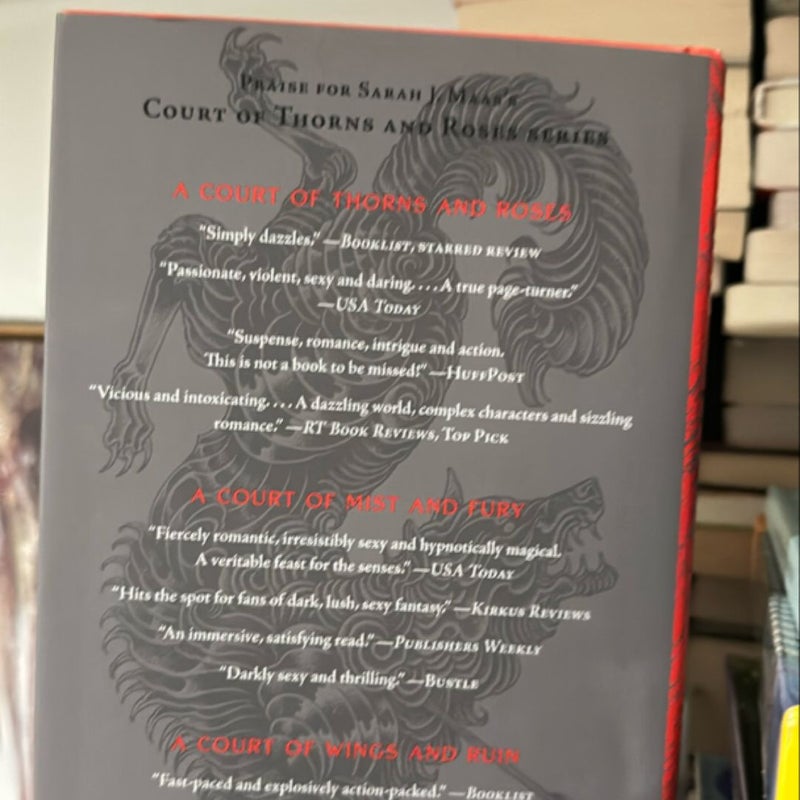 Praise for Sarah J. Maas's
Court of Thorns and Roses series
A COURT OF THORNS AND ROSES
“Simply dazzles.” —Booklist, starred review
“Passionate, violent, sexy and daring. . . . A true page-turner.”
—USA Today
“Suspense, romance, intrigue and action.
This is not a book to be missed!” —HuffPost
“Vicious and intoxicating. . . . A dazzling world, complex characters and sizzling
romance.” —RT Book Reviews, Top Pick
A COURT OF MIST AND FURY
“Fiercely romantic, irresistibly sexy and hypnotically magical.
A veritable feast for the senses.” —USA Today
“Hits the spot for fans of dark, lush, sexy fantasy.” —Kirkus Reviews
“An immersive, satisfying read.” —Publishers Weekly
“Darkly sexy and thrilling.” —Bustle
A COURT OF WINGS AND RUIN
“Fast-paced and explosively action-packed.” —Booklist